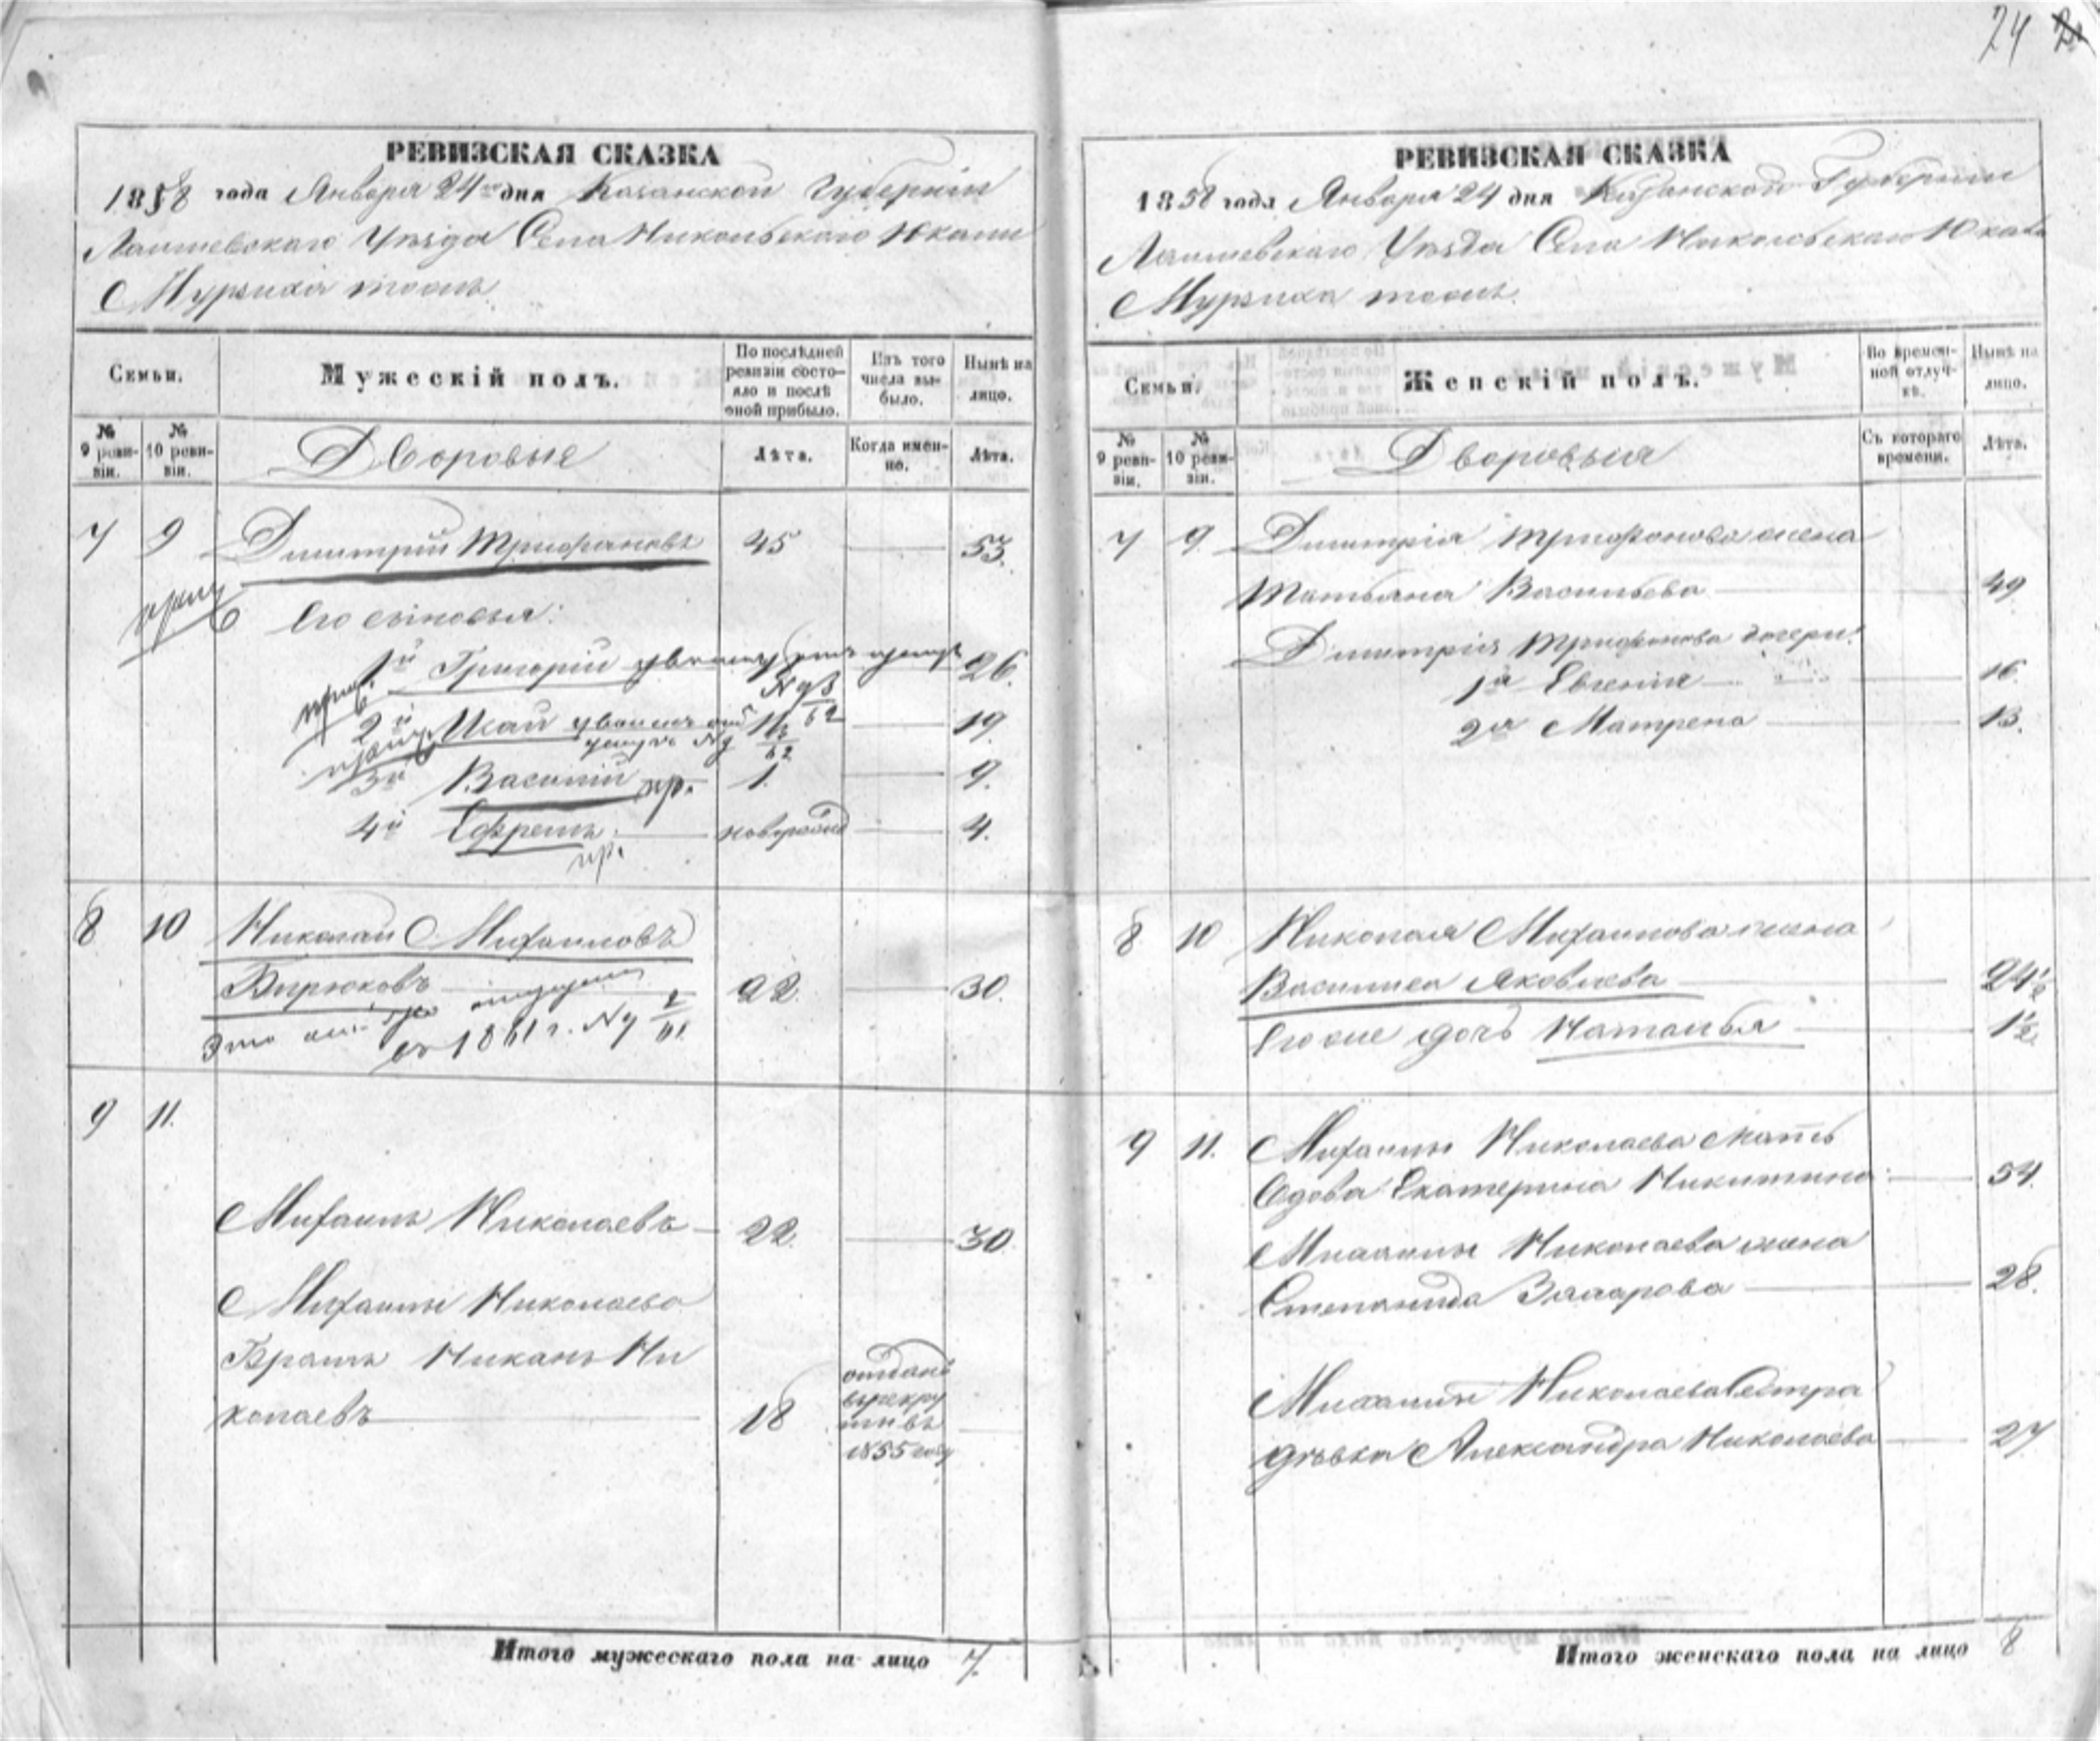 24
РЕВИЗСКАЯ СКАЗКА
1858 года Января 24го дня Казанской Губернiи
Лаишевскаго Уѣзда Села Никольскаго Юкали
Мурзиха тожъ
Семьи.
Мужескiй полъ.
По послѣдней ревизiи состояло и послѣ оной прибыло.
Изъ того числа выбыло.
Нынѣ на лицо.
№ 9 ревизiи.
№ 10 ревизiи.
Дворовые
Лѣта.
Когда именно.
Лѣта.
7 9 Дмитрiй Трифоновъ 45 53.
Его сыновья:
1й Григорiй 26.
2й Исай 11 19.
3й Василiй пр. 1. 9.
4й Ефремъ новорожд 4.
пр.
8 10 Николай Михаиловъ
Бирюковъ 22. 30.
1861 г. №
9 11.
Михаилъ Николаевъ 22. 30.
Михаилы Николаева
Братъ Никанъ Ни
колаевъ 18
отданъ
въ рекру
ты въ
1855 году
Итого мужескаго пола на лицо 7.
РЕВИЗСКАЯ СКАЗКА
1858 года Января 24 дня Казанской Губернiи
Лаишевскаго Уѣзда Села Никольскаго Юкали
Мурзиха тожъ.
Семьи.
Женскiй полъ.
Во временной отлучкѣ.
Нынѣ на лицо.
№ 9 ревизiи.
№ 10 ревизiи.
Дворовыя
Съ котораго времени.
Лѣта.
7 9. Дмитрiя Трифонова жена
Татьяна Васильева 49
Дмитрiя Трифонова дочери:
1я Евгенiя 16.
2я Матрена 13.
8 10 Николая Михаилова жена
Василиса Яковлева 24½
Его же дочь Наталья 1½
9 11. Михаилы Николаева мать
вдова Екатерина Никитина 54.
Михаилы Николаева жена
Степанида Захарова 28.
Михаилы Николаева Сестра
дѣвка Александра Николаева 27
Итого женскаго пола на лицо 8